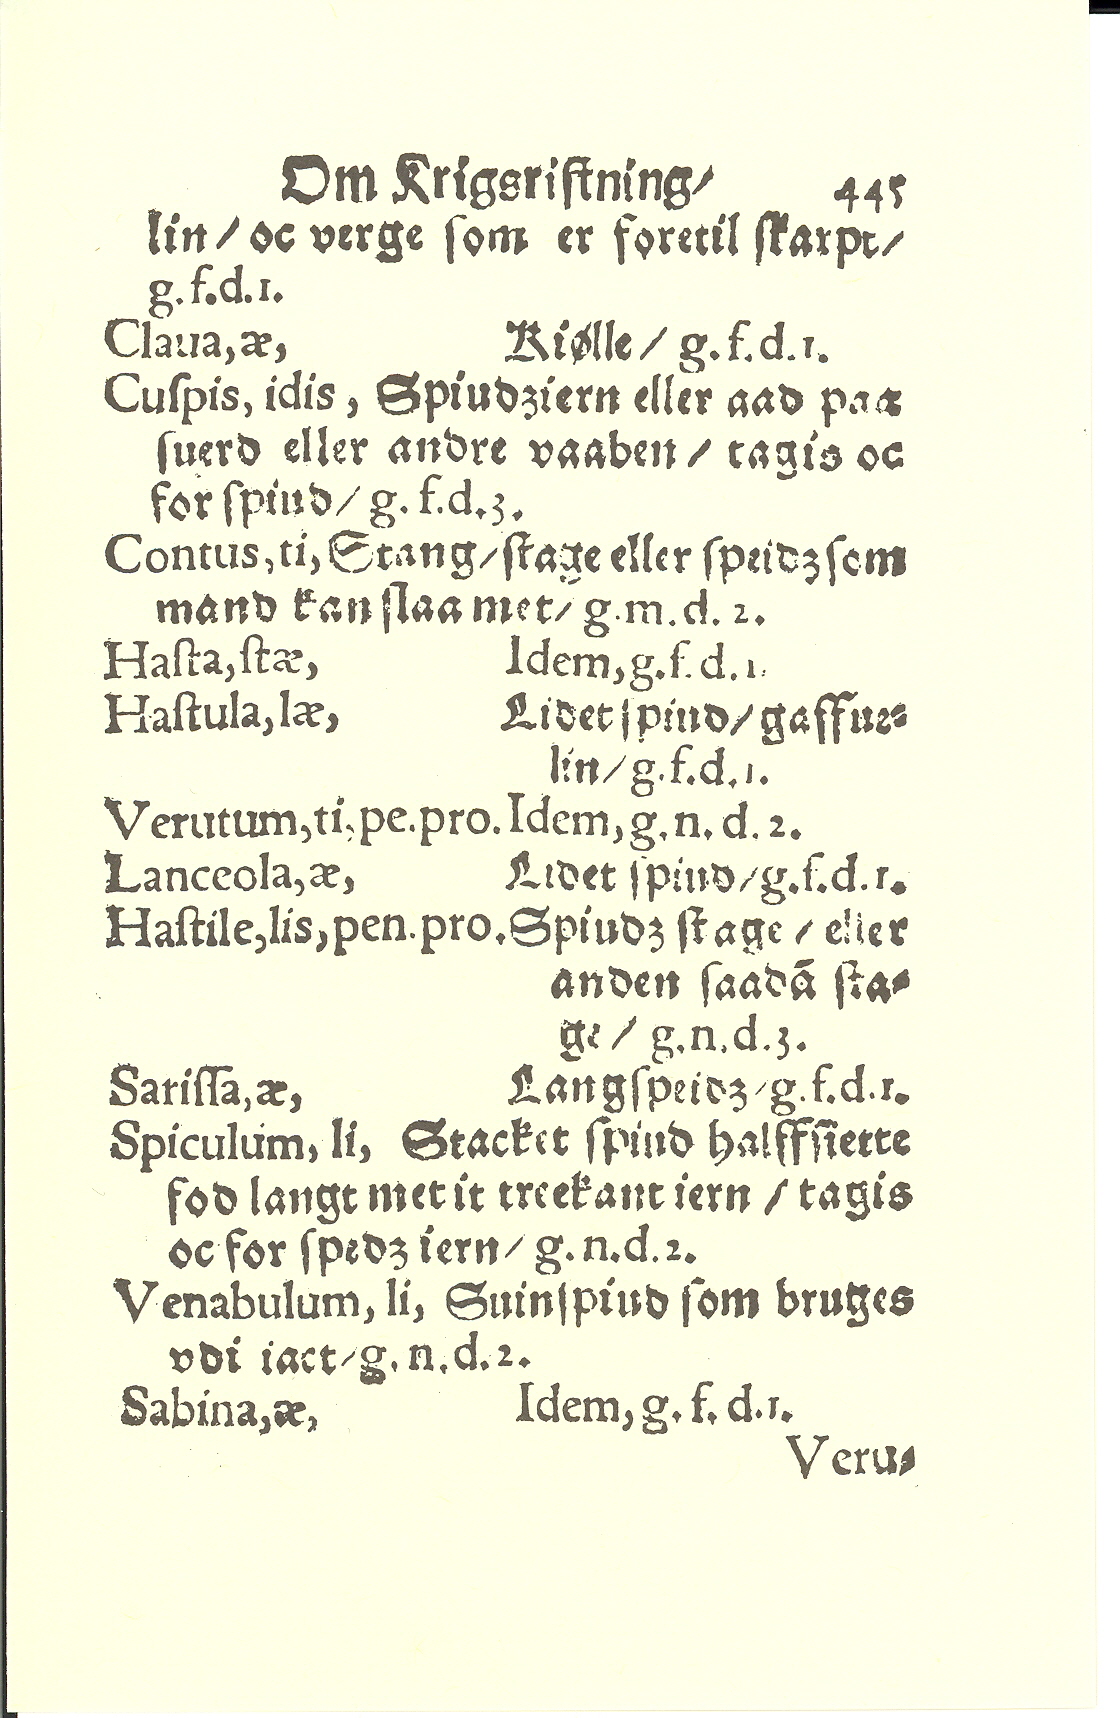 Om Krigsristning/ 445
lin/ oc verge som er foretil skarpt/
g. f.d.1.
Claua,æ, Kiølle/ g.f.d.1.
Cuſpis, idis, Spiudziern eller aad paa
ſuerd eller andre vaaben/ tagis oc
for ſpiud/ g. f.d.3.
Contus,ti, Stang/ſtage eller ſpeidz ſom
mand kan ſlaa met/ g.m.d. 2.
Haſta,ſtæ, Idem,g.f.d.1.
Haſtula,læ, Lidet ſpiud/ gaffue⸗
lin/ g.f.d.1.
Verutum,ti,pe.pro. Idem,g.n.d.2.
Lanceola,æ, Lidet ſpiud/g.f.d.1.
Haſtile,lis,pen.pro. Spiudz ſtage/ eller
anden ſaadã ſta⸗
ge/ g.n.d.3.
Sariſſa,æ, Langſpeidz/g.f.d.1.
Spiculum, li, Stacket ſpiud halffſiette
fod langt met it treekant iern/ tagis
oc for ſpedz iern/ g.n.d.2.
Venabulum, li, Suinſpiud ſom bruges
vdi iact/g.n.d.2.
Sabina,æ, Idem,g.f.d.1.
Veru⸗